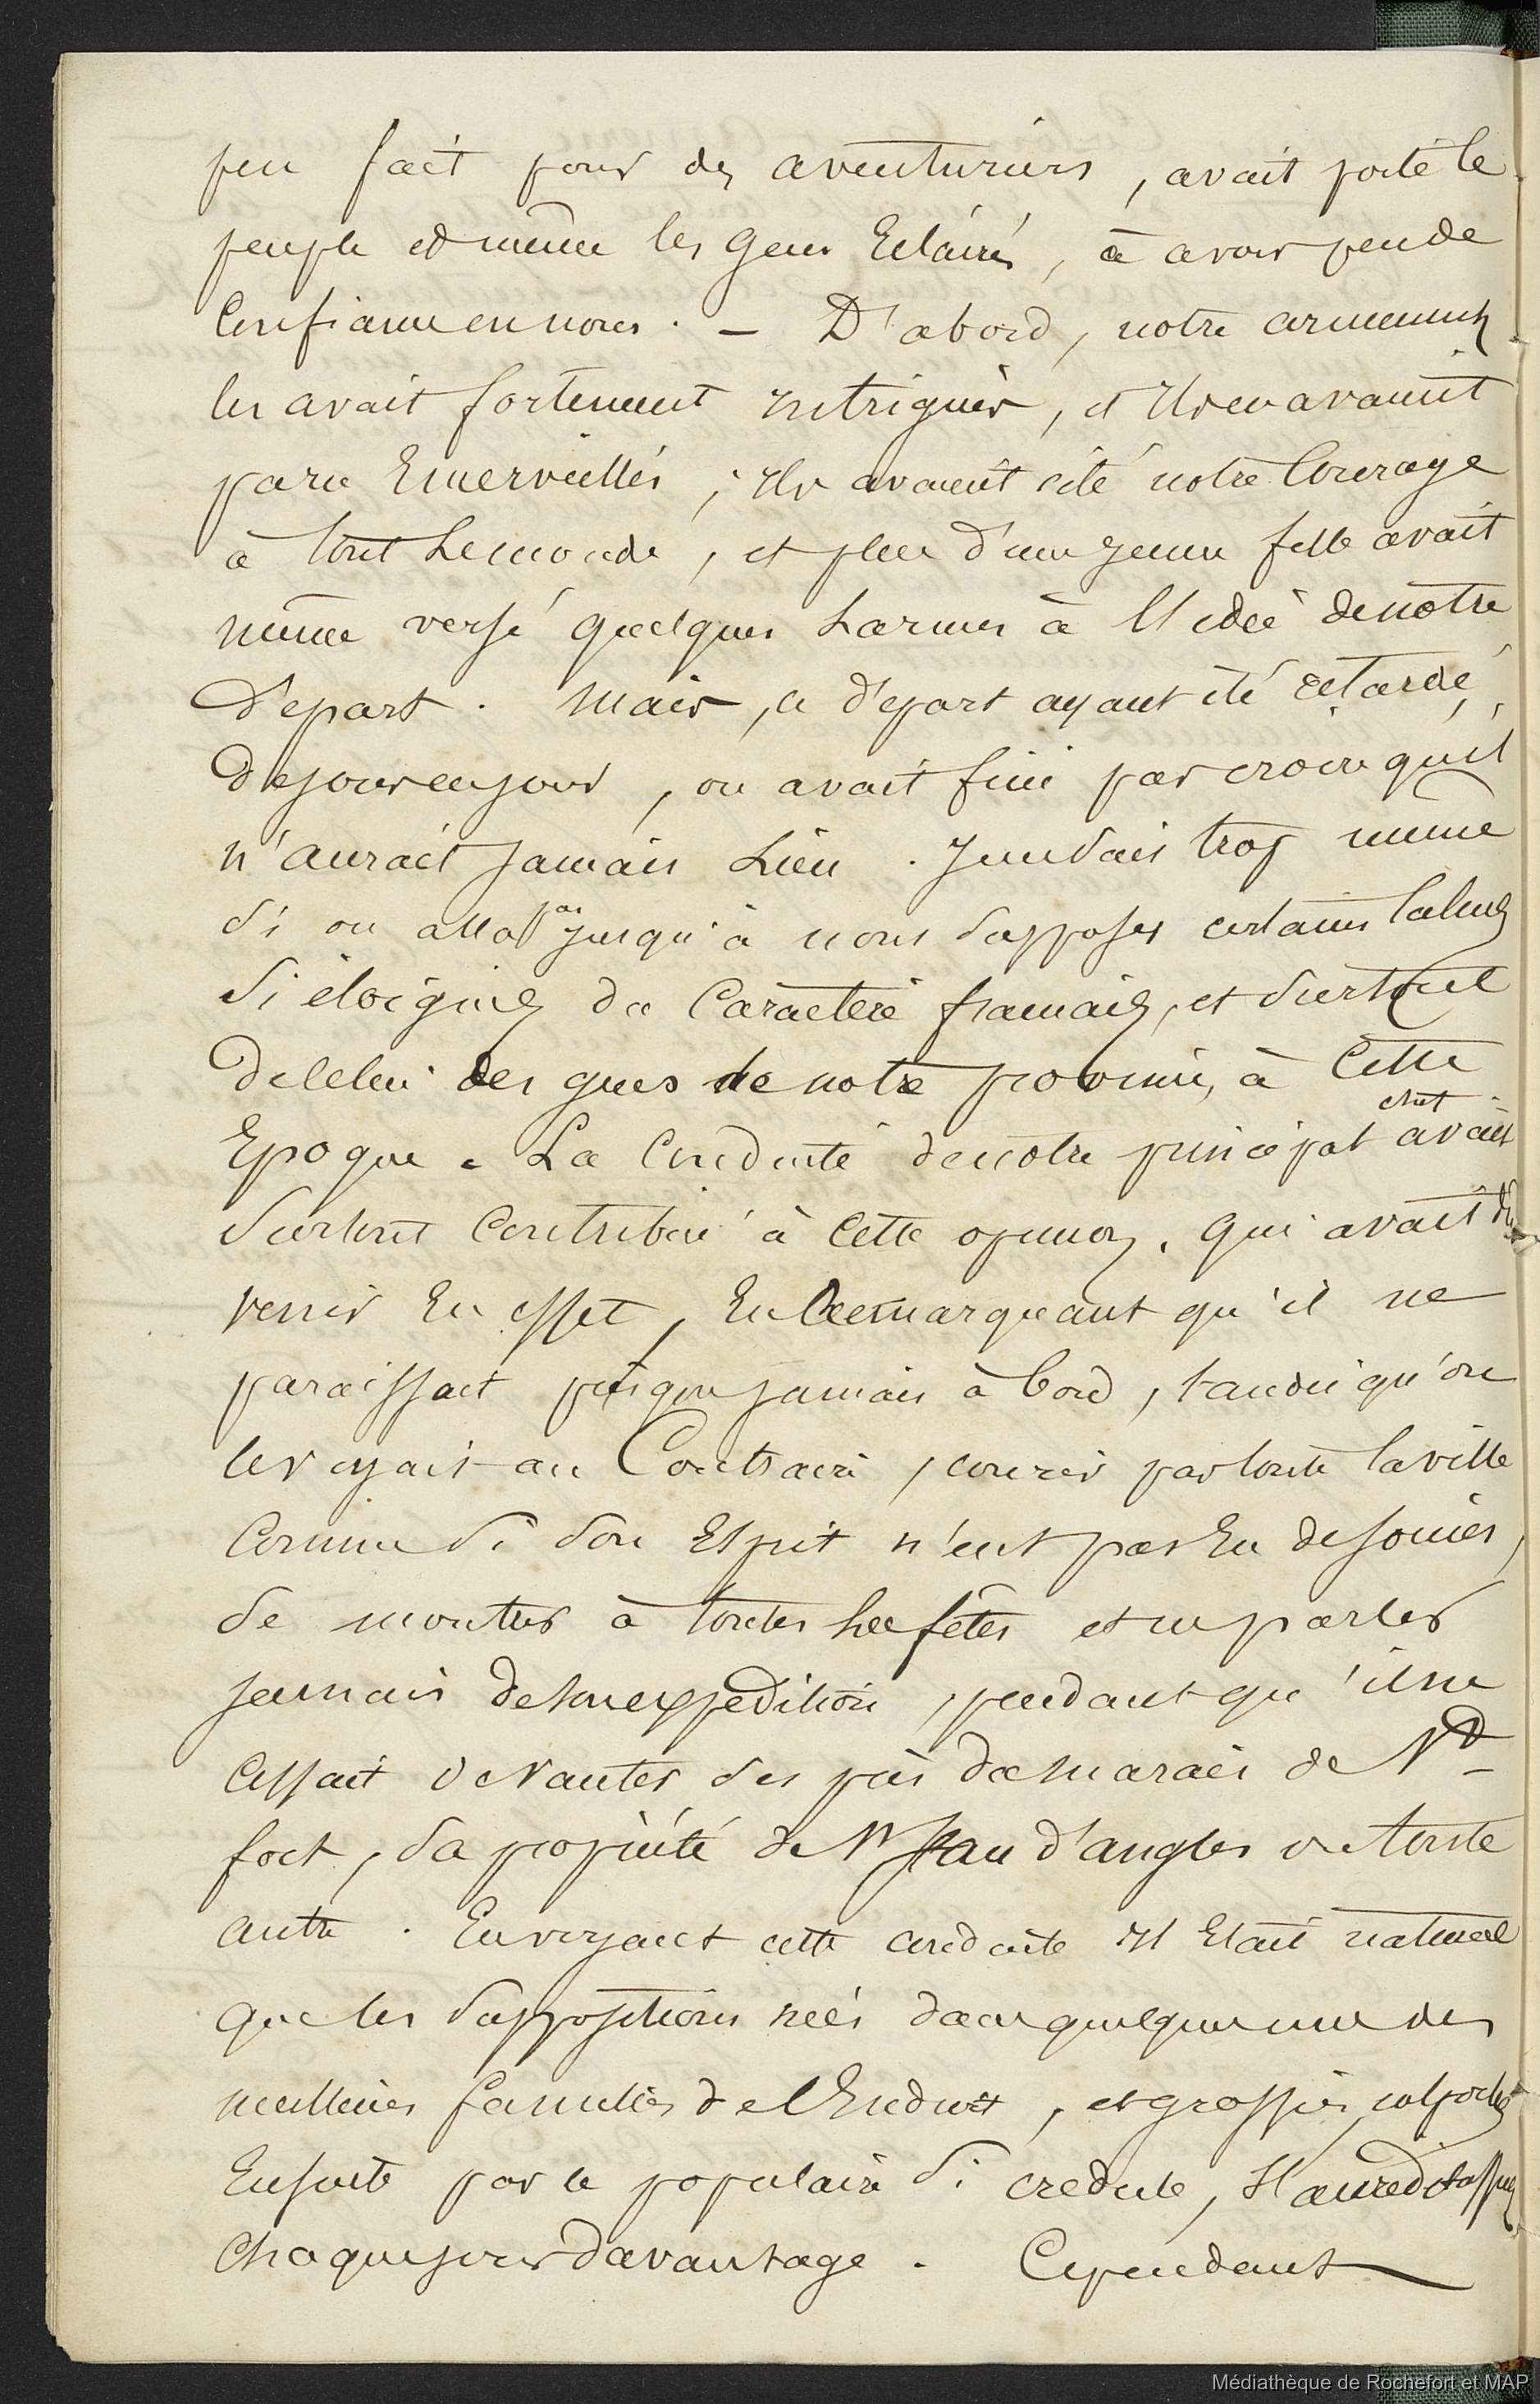 peu fait pour des aventuriers, avait porté le
peuple et même les gens Eclairés, à avoir peu de
Confiance en nous. — D'abord, notre armement
les avait fortement intrigués, et Ils en avaient
paru Emerveillés; Ils avaient cité notre Courage
à tout Le monde, et plus d'une jeune fille avait
même versé quelques Larmes à l'idée de notre
Départ. Mais, ce départ ayant été retardé,
de jour en jour, on avait fini par croire qu'il
n'aurait jamais Lieu. Je ne sais trop même
si on alla pas jusqu'à nous supposer certains
si éloignés du Caractère français, et surtout
de celui des gens de notre province, à Cette
Epoque. La Conduite de notre principal chef avait
surtout Contribué à Cette opinion. Qui avait du
venir En effet, En Remarquant qu'il ne
paraissait presque jamais à bord, tandis qu'on
le voyait au Contraire, courir par toute la ville
Comme si son Esprit n'eut pas Eu de soucis,
se montrer à toutes Les fêtes et ne parler
jamais de son expédition, pendant qu'il ne
Cessait de vanter ses prés de marais de
fort, sa propriété de St Jean d'angles ou toute
autre. En voyant cette conduite Il Etait naturel
que les suppositions nées dans quelques une des
meilleures familles de l'Endroit, et grossies, colportées
Ensuite par le populaire si credule,
Chaque jour davantage. Cependant
Médiathèque de Rochefort et MAP